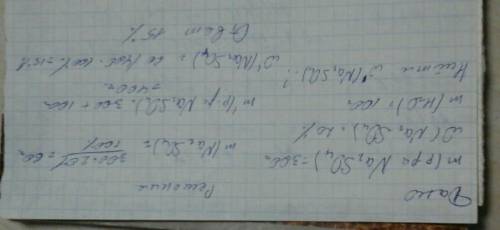 Дано
Решение
m(р-ра Na₂SO₄) = 300г
m(Na₂SO₄) = 300·20% / 100% = 60г
ω(Na₂SO₄) = 20%
m(H₂O) = 100г
m'(р-ра Na₂SO₄) = 300 + 100 = 400г
Найти ω'(Na₂SO₄)-?
ω'(Na₂SO₄) = 60/400·100% = 15%
Ответ 15%